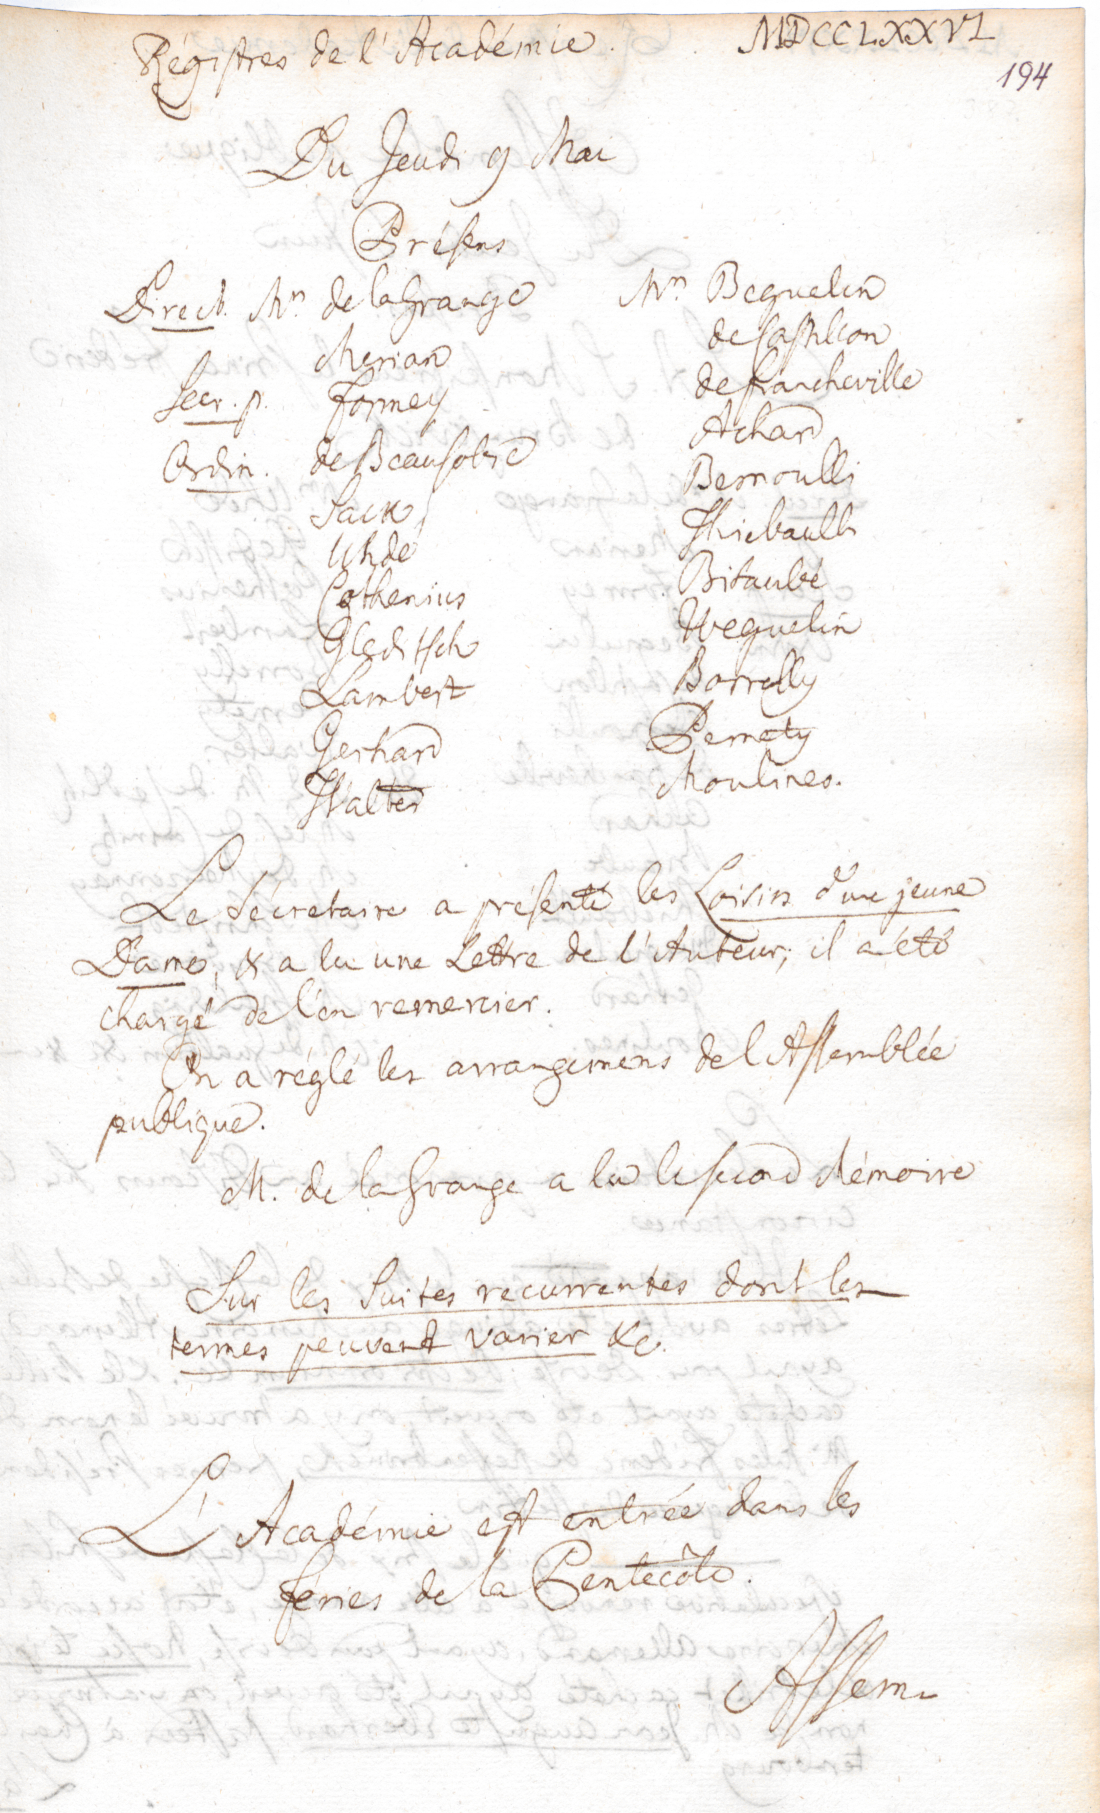 Régistres de l'Académie.
MDCCLXXVI
194
Du Jeudi 9 Mai
Présens
Direct. Mrs de la Grange
Merian
Secr. p. Formey
Ordin. de Beausobre
Sack
Uhde
Cothenius
Gleditsch
Lambert
Gerhard
Walter
Mrs Beguelin
de Castillon
de Francheville
Achard
Bernoulli
Thiebault
Bitaubé
Weguelin
Borrelly
Pernety
Moulines.
Le Sécretaire a présenté les Loisirs d'une jeune
Dame, & a lu une Lettre de l'Auteur; il a été
chargé de l'en remercier.
On a réglé les arrangemens de l'Assemblée
publique.
M. de la Grange a lu le second Mémoire
Sur les Suites recurrentes dont les
termes peuvent varier &c.
L'Académie est entrée dans les
feries de la Pentecôte.
Assem